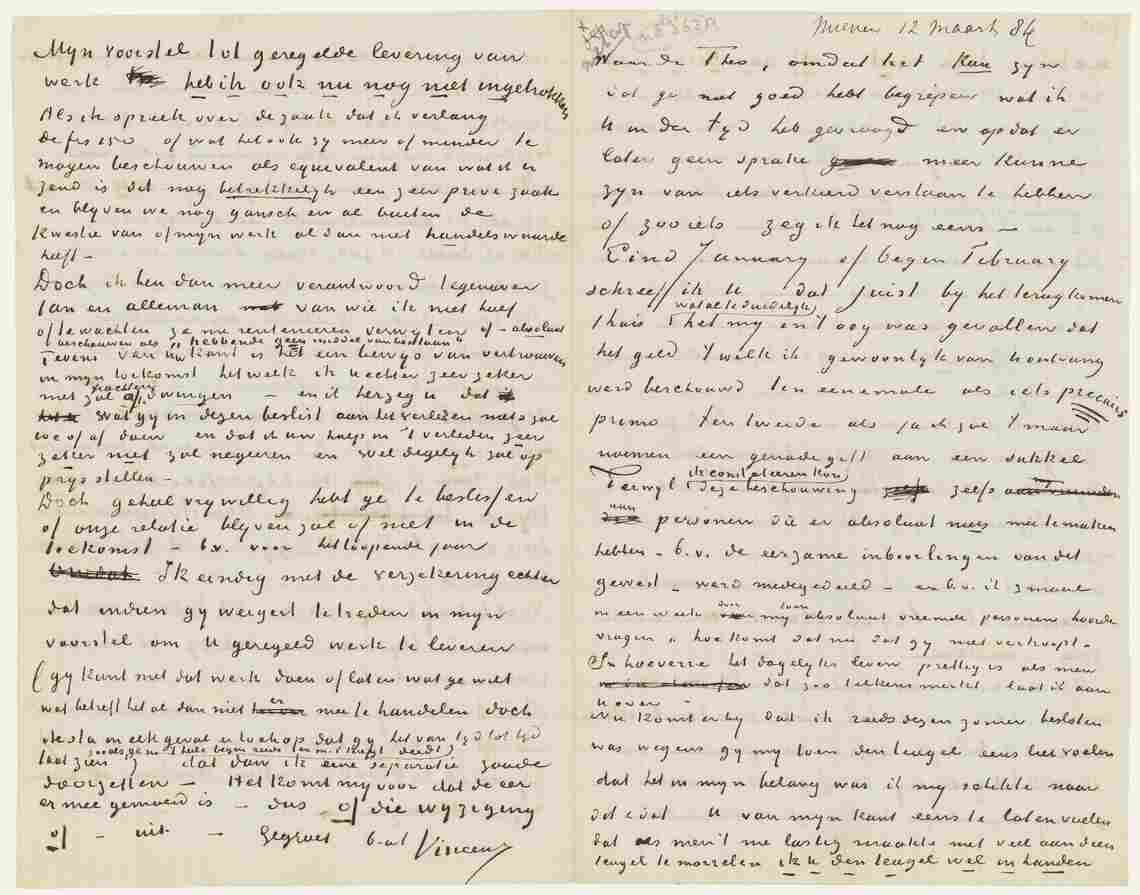 Mijn voorstel tot geregelde levering van
werk heb ik ook nu nog niet ingetrokken
Als ik spreek over de zaak dat ik verlang
de frs 150 of wat het ook zij meer of minder te
mogen beschouwen als equivalent van wat ik U
zend is dit nog betrekkelijk een zeer privé zaak
en blijven we nog gansch en al buiten de
kwestie van of mijn werk al dan niet handelswaarde
heeft –
Doch ik ben dan meer verantwoord tegenover
Jan en alleman van wie ik niet hoef
af te wachten ze me renteneeren verwijten of – absoluut
beschouwen als "hebbende geen middel van bestaan"
Tevens van Uw kant is het een bewijs van vertrouwen
in mijn toekomst hetwelk ik U echter zeer zeker
niet zal trachten af te dwingen – en ik herzeg U dat
wat gij in dezen beslist aan het verleden niets zal
toe of af doen en dat ik uw hulp in 't verleden zeer
zeker niet zal negeeren en wel degelijk zal op
prijs stellen –
Doch geheel vrijwillig hebt ge te beslissen
of onze relatie blijven zal of niet in de
toekomst – b.v. voor het loopende jaar
Omdat Ik eindig met de verzekering echter
dat indien gij weigert te treden in mijn
voorstel om U geregeld werk te leveren
(gij kunt met dat werk doen of laten wat ge wilt
wat betreft het al dan niet er mee te handelen doch
sta in elk geval er toch op dat gij het van tijd tot tijd
laat zien zooals ge in 't heele begin reeds ten minste deedt)
dat dan ik eene separatie zoude
doorzetten – Het komt mij voor dat de eer
er mee gemoeid is – dus of die wijziging
of – uit. – Gegroet b.à.t. Vincent
Nuenen 12 Maart 84
Waarde Theo, omdat het kan zijn
dat ge niet goed hebt begrepen wat ik
U in der tijd heb gevraagd en opdat er
later geen sprake meer kunne
zijn van iets verkeerd verstaan te hebben
of zoo iets zeg ik het nog eens –
Eind January of begin February
schreef ik U dat juist bij het terugkomen
thuis het mij wat al te duidelijk in 't oog was gevallen dat
het geld 't welk ik gewoonlijk van U ontvang
werd beschouwd ten eenemale als iets precairs
primo ten tweede als ja ik zal 't maar
noemen een genade gift aan een sukkel
Terwijl ik constateeren kon deze beschouwing zelfs
aan personen die er absoluut niets mee te maken
hebben – b.v. de eerzame inboorlingen van dit
gewest – werd medegedeeld – en b.v. ik 3 maal
in een week door mij toen absoluut vreemde personen hoorde
vragen "hoe komt dat nu dat gij niet verkoopt" –
In hoeverre het dagelijks leven prettig is als men
dat zoo telkens merkt laat ik aan
U over –
Nu komt er bij dat ik reeds dezen zomer besloten
was wegens gij mij toen den teugel eens liet voelen
dat het in mijn belang was ik mij schikte naar
dit idee U van mijn kant eens te laten voelen
dat als men 't me lastig maakte met veel aan dien
teugel te morrelen ik U den teugel wel in handen